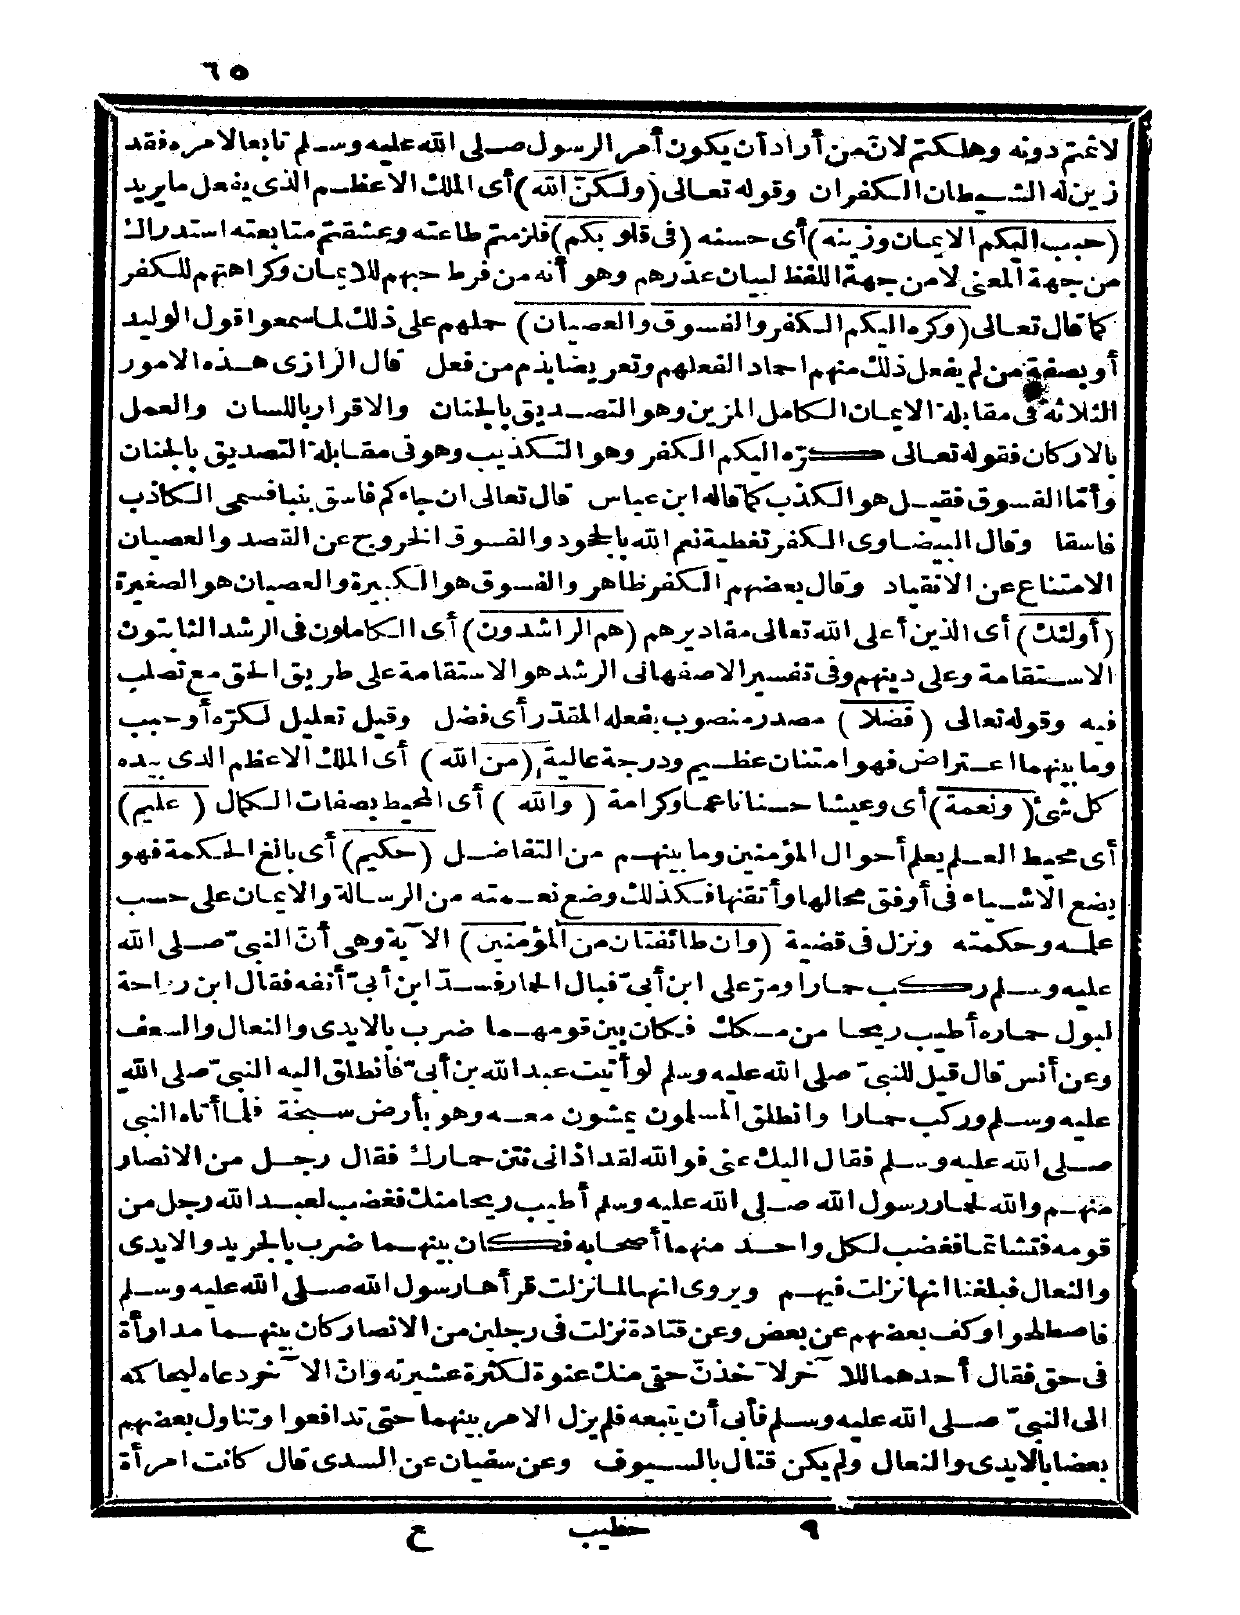 ٦٥
لاغتم دونه وهلكتم لانّ من أراد أن يكون أمر الرسول صلى الله عليه وسلم تابعا لامره فقد
زين له الشيطان الكفران وقوله تعالى (ولكنّ الله) أى الملك الاعظم الذى يفعل ما يريد
(حبب اليكم الايمان وزينه) أى حسنه (فى قلوبكم) فلزمتم طاعته وعشقتم متابعته استدراك
من جهة المعنى لا من جهة اللفظ لبيان عذرهم وهو أنه من فرط حبهم للايمان وكراهتهم للكفر
كما قال تعالى (وكره اليكم الكفر والفسوق والعصيان) حملهم على ذلك لما سمعوا قول الوليد
أو بصفة من لم يفعل ذلك منهم احمادا لفعلهم وتعريضا بذم من فعل قال الرازى هذه الامور
الثلاثة فى مقابلة الايمان الكامل المزين وهو التصديق بالجنان والاقرار باللسان والعمل
بالاركان فقوله تعالى كرّه اليكم الكفر وهو التكذيب وهو فى مقابلة التصديق بالجنان
وأمّا الفسوق فقيل هو الكذب كما قاله ابن عباس قال تعالى ان جاءكم فاسق بنبا فسمى الكاذب
فاسقا وقال البيضاوى الكفر تغطية نعم الله بالجحود والفسوق الخروج عن القصد والعصيان
الامتناع عن الانقياد وقال بعضهم الكفر ظاهر والفسوق هو الكبيرة والعصيان هو الصغيرة
(أولئك) أى الذين أعلى الله تعالى مقاديرهم (هم الراشدون) أى الكاملون فى الرشد الثابتون
الاستقامة وعلى دينهم وفى تفسير الاصفهانى الرشد هو الاستقامة على طريق الحق مع تصلب
فيه وقوله تعالى (فضلا) مصدر منصوب بفعله المقدّر أى فضل وقيل تعليل لكرّه أو حبب
وما بينهما اعتراض فهو امتنان عظيم ودرجة عالية (من الله) أى الملك الاعظم الذى بيده
كل شئ (ونعمة) أى وعيشا حسنا ناعما وكرامة (والله) أى المحيط بصفات الكمال (عليم)
أى محيط العلم يعلم أحوال المؤمنين وما بينهم من التفاضل (حكيم) أى بالغ الحكمة فهو
يضع الاشياء فى أوفق محالها وأتقنها فكذلك وضع نعمته من الرسالة والايمان على حسب
علمه وحكمته ونزل فى قضية (وان طائفتان من المؤمنين) الآية وهى أنّ النبىّ صلى الله
عليه وسلم ركب حمارا ومرّ على ابن أبىّ فبال الحمار فسدّ ابن أبىّ أنفه فقال ابن رواحة
لبول حماره أطيب ريحا من مسكك فكان بين قومهما ضرب بالايدى والنعال والسعف
وعن أنس قال قيل للنبىّ صلى الله عليه وسلم لو أتيت عبد الله بن أبىّ فانطلق اليه النبىّ صلى الله
عليه وسلم وركب حمارا وانطلق المسلمون يمشون معه وهو بأرض سبخة فلما أتاه النبى
صلى الله عليه وسلم فقال اليك عنى فوالله لقد اذانى نتن حمارك فقال رجل من الانصار
منهم والله لحمار رسول الله صلى الله عليه وسلم أطيب ريحا منك فغضب لعبد الله رجل من
قومه فتشاتما فغضب لكل واحد منهما أصحابه فكان بينهما ضرب بالجريد والايدى
والنعال فبلغنا انها نزلت فيهم ويروى انها لما نزلت قرأها رسول الله صلى الله عليه وسلم
فاصطلحوا وكف بعضهم عن بعض وعن قتادة نزلت فى رجلين من الانصار كان بينهما مدارأة
فى حق فقال أحدهما للآخر لآخذنّ حقى منك عنوة لكثرة عشيرته وانّ الآخر دعاه ليحاكمه
الى النبىّ صلى الله عليه وسلم فأبى أن يتبعه فلم يزل الامر بينهما حتى تدافعوا وتناول بعضهم
بعضا بالايدى والنعال ولم يكن قتال بالسيوف وعن سفيان عن السدى قال كانت امرأة
٩ خطيب ع